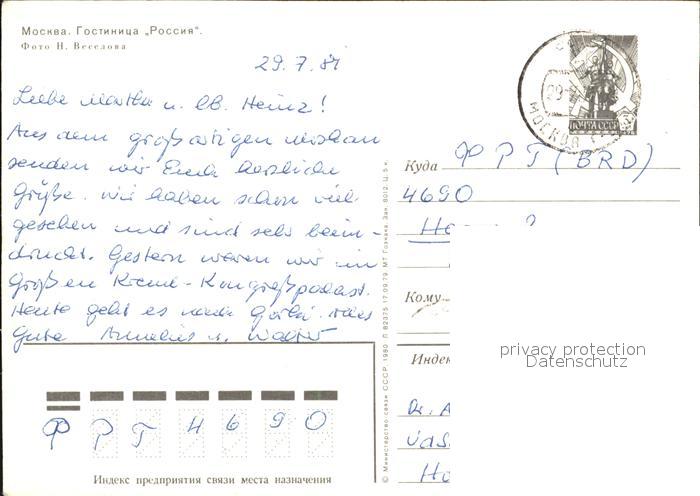 Москва. Гостиница „Россия“.
Фото Н. Веселова
29.7.81
Liebe Martha u. lb. Heinz!
Aus dem großartigen Moskau
senden wir Euch herzliche
Grüße. Wir haben schon viel
gesehen und sind sehr beein-
druckt. Gestern waren wir im
großen Kreml-Kongreßpalast.
Heute geht es nach Gorki. Alles
Gute Annelies u. Walter
ПОЧТА СССР
МОСКВА
Куда ФРГ (BRD)
4690
He
Кому
Индек
privacy protection
Datenschutz
Dr. A
Vas
He
© Министерство связи СССР, 1980. Л 82375 17.09.79. МТ Гознака. Зак. 8012. Ц. 5 к.
ФРГ 4690
Индекс предприятия связи места назначения